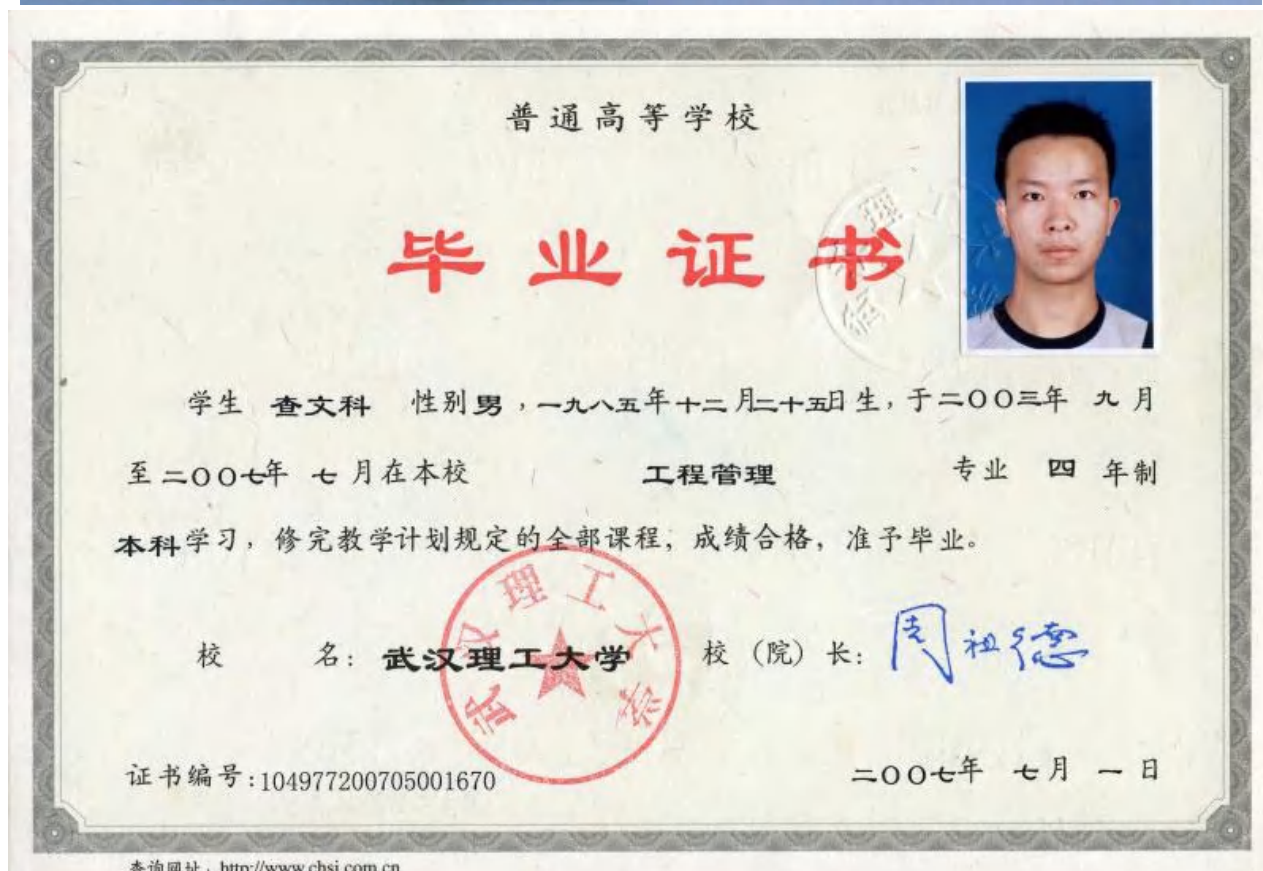 普通高等学校
毕业证书
学生 查文科 性别男，一九八五年十二月二十五日生，于二〇〇三年 九月
至二〇〇七年 七月在本校 工程管理 专业 四 年制
本科学习，修完教学计划规定的全部课程，成绩合格，准予毕业。
校 名：武汉理工大学 校（院）长：周祖德
武汉理工大学
证书编号：104977200705001670 二〇〇七年 七月 一日
查询网址：http://www.chsi.com.cn